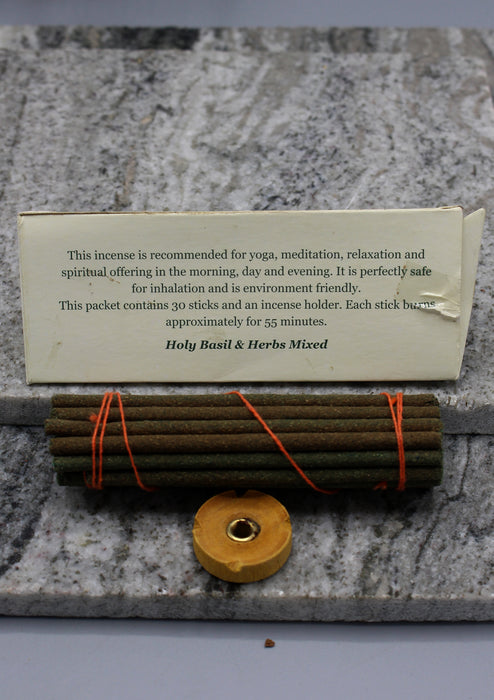 This incense is recommended for yoga, meditation, relaxation and
spiritual offering in the morning, day and evening. It is perfectly safe
for inhalation and is environment friendly.
This packet contains 30 sticks and an incense holder. Each stick burns
approximately for 55 minutes.
Holy Basil & Herbs Mixed